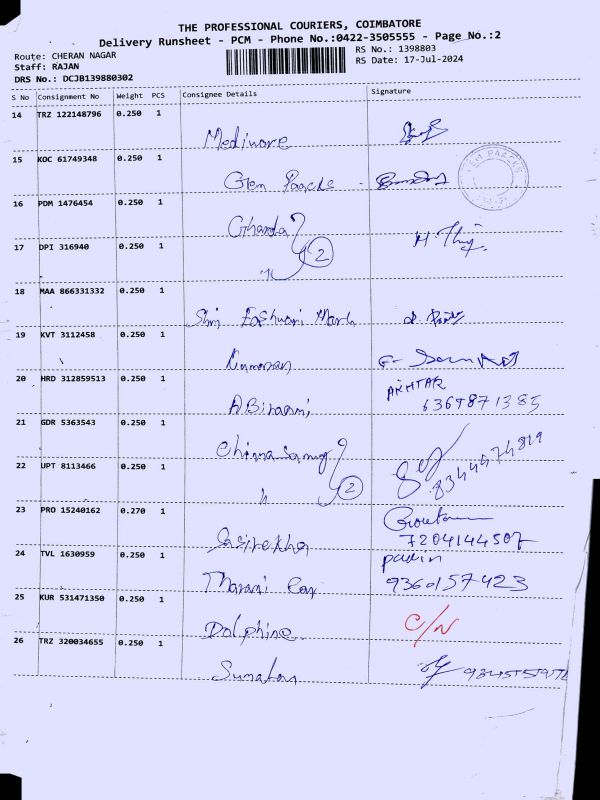 THE PROFESSIONAL COURIERS, COIMBATORE
Delivery Runsheet - PCM - Phone No.:0422-3505555 - Page No.:2
Route: CHERAN NAGAR RS No.: 1398803
Staff: RAJAN RS Date: 17-Jul-2024
DRS No.: DCJB139880302
S No Consignment No Weight PCS Consignee Details Signature
14 TRZ 122148796 0.250 1
Mediware
15 KOC 61749348 0.250 1
Glem Paacks
16 PDM 1476454 0.250 1
Gharda
17 DPI 316940 0.250 1 2
18 MAA 866331332 0.250 1
Shri Eashwari
19 KVT 3112458 0.250 1
20 HRD 312859513 0.250 1 AKHTAR
ABirami
21 GDR 5363543 0.250 1
Chinnasamy
22 UPT 8113466 0.250 1
2
23 PRO 15240162 0.270 1
Sasirekha 7204144507
24 TVL 1630959 0.250 1
Tharani Car 9360157423
25 KUR 531471350 0.250 1
Dolphine C/N
26 TRZ 320034655 0.250 1